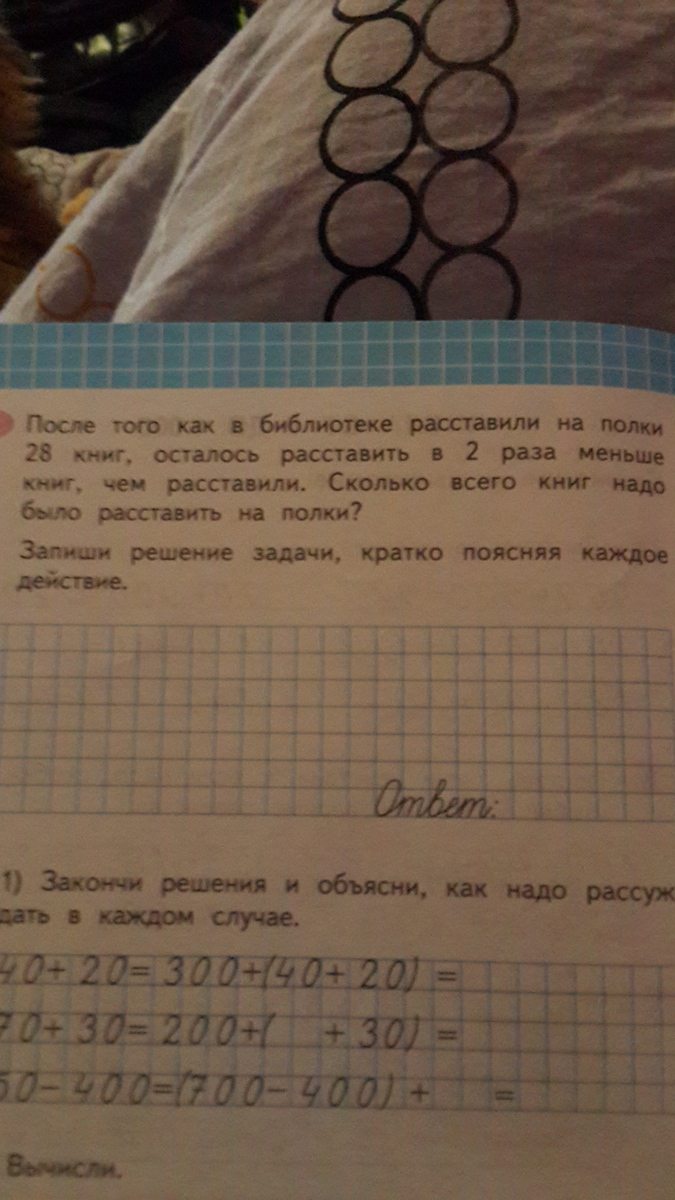 После того как в библиотеке расставили на полки
28 книг, осталось расставить в 2 раза меньше
книг, чем расставили. Сколько всего книг надо
было расставить на полки?
Запиши решение задачи, кратко поясняя каждое
действие.
Ответ:
1) Закончи решения и объясни, как надо рассуж
дать в каждом случае.
40+ 20= 300+(40+ 20) =
70+ 30= 200+( + 30) =
50- 400=(700- 400) + =
Вычисли.